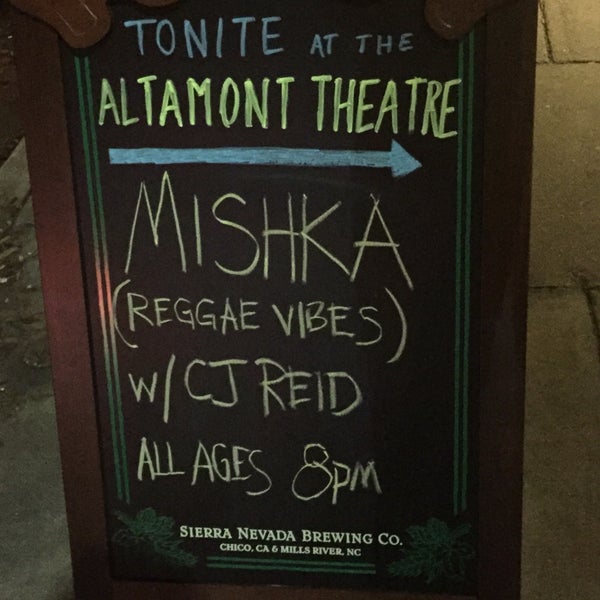 TONITE AT THE
ALTAMONT THEATRE
MISHKA
(REGGAE VIBES)
W/CJ REID
ALL AGES 8PM
SIERRA NEVADA BREWING CO.
CHICO, CA & MILLS RIVER, NC